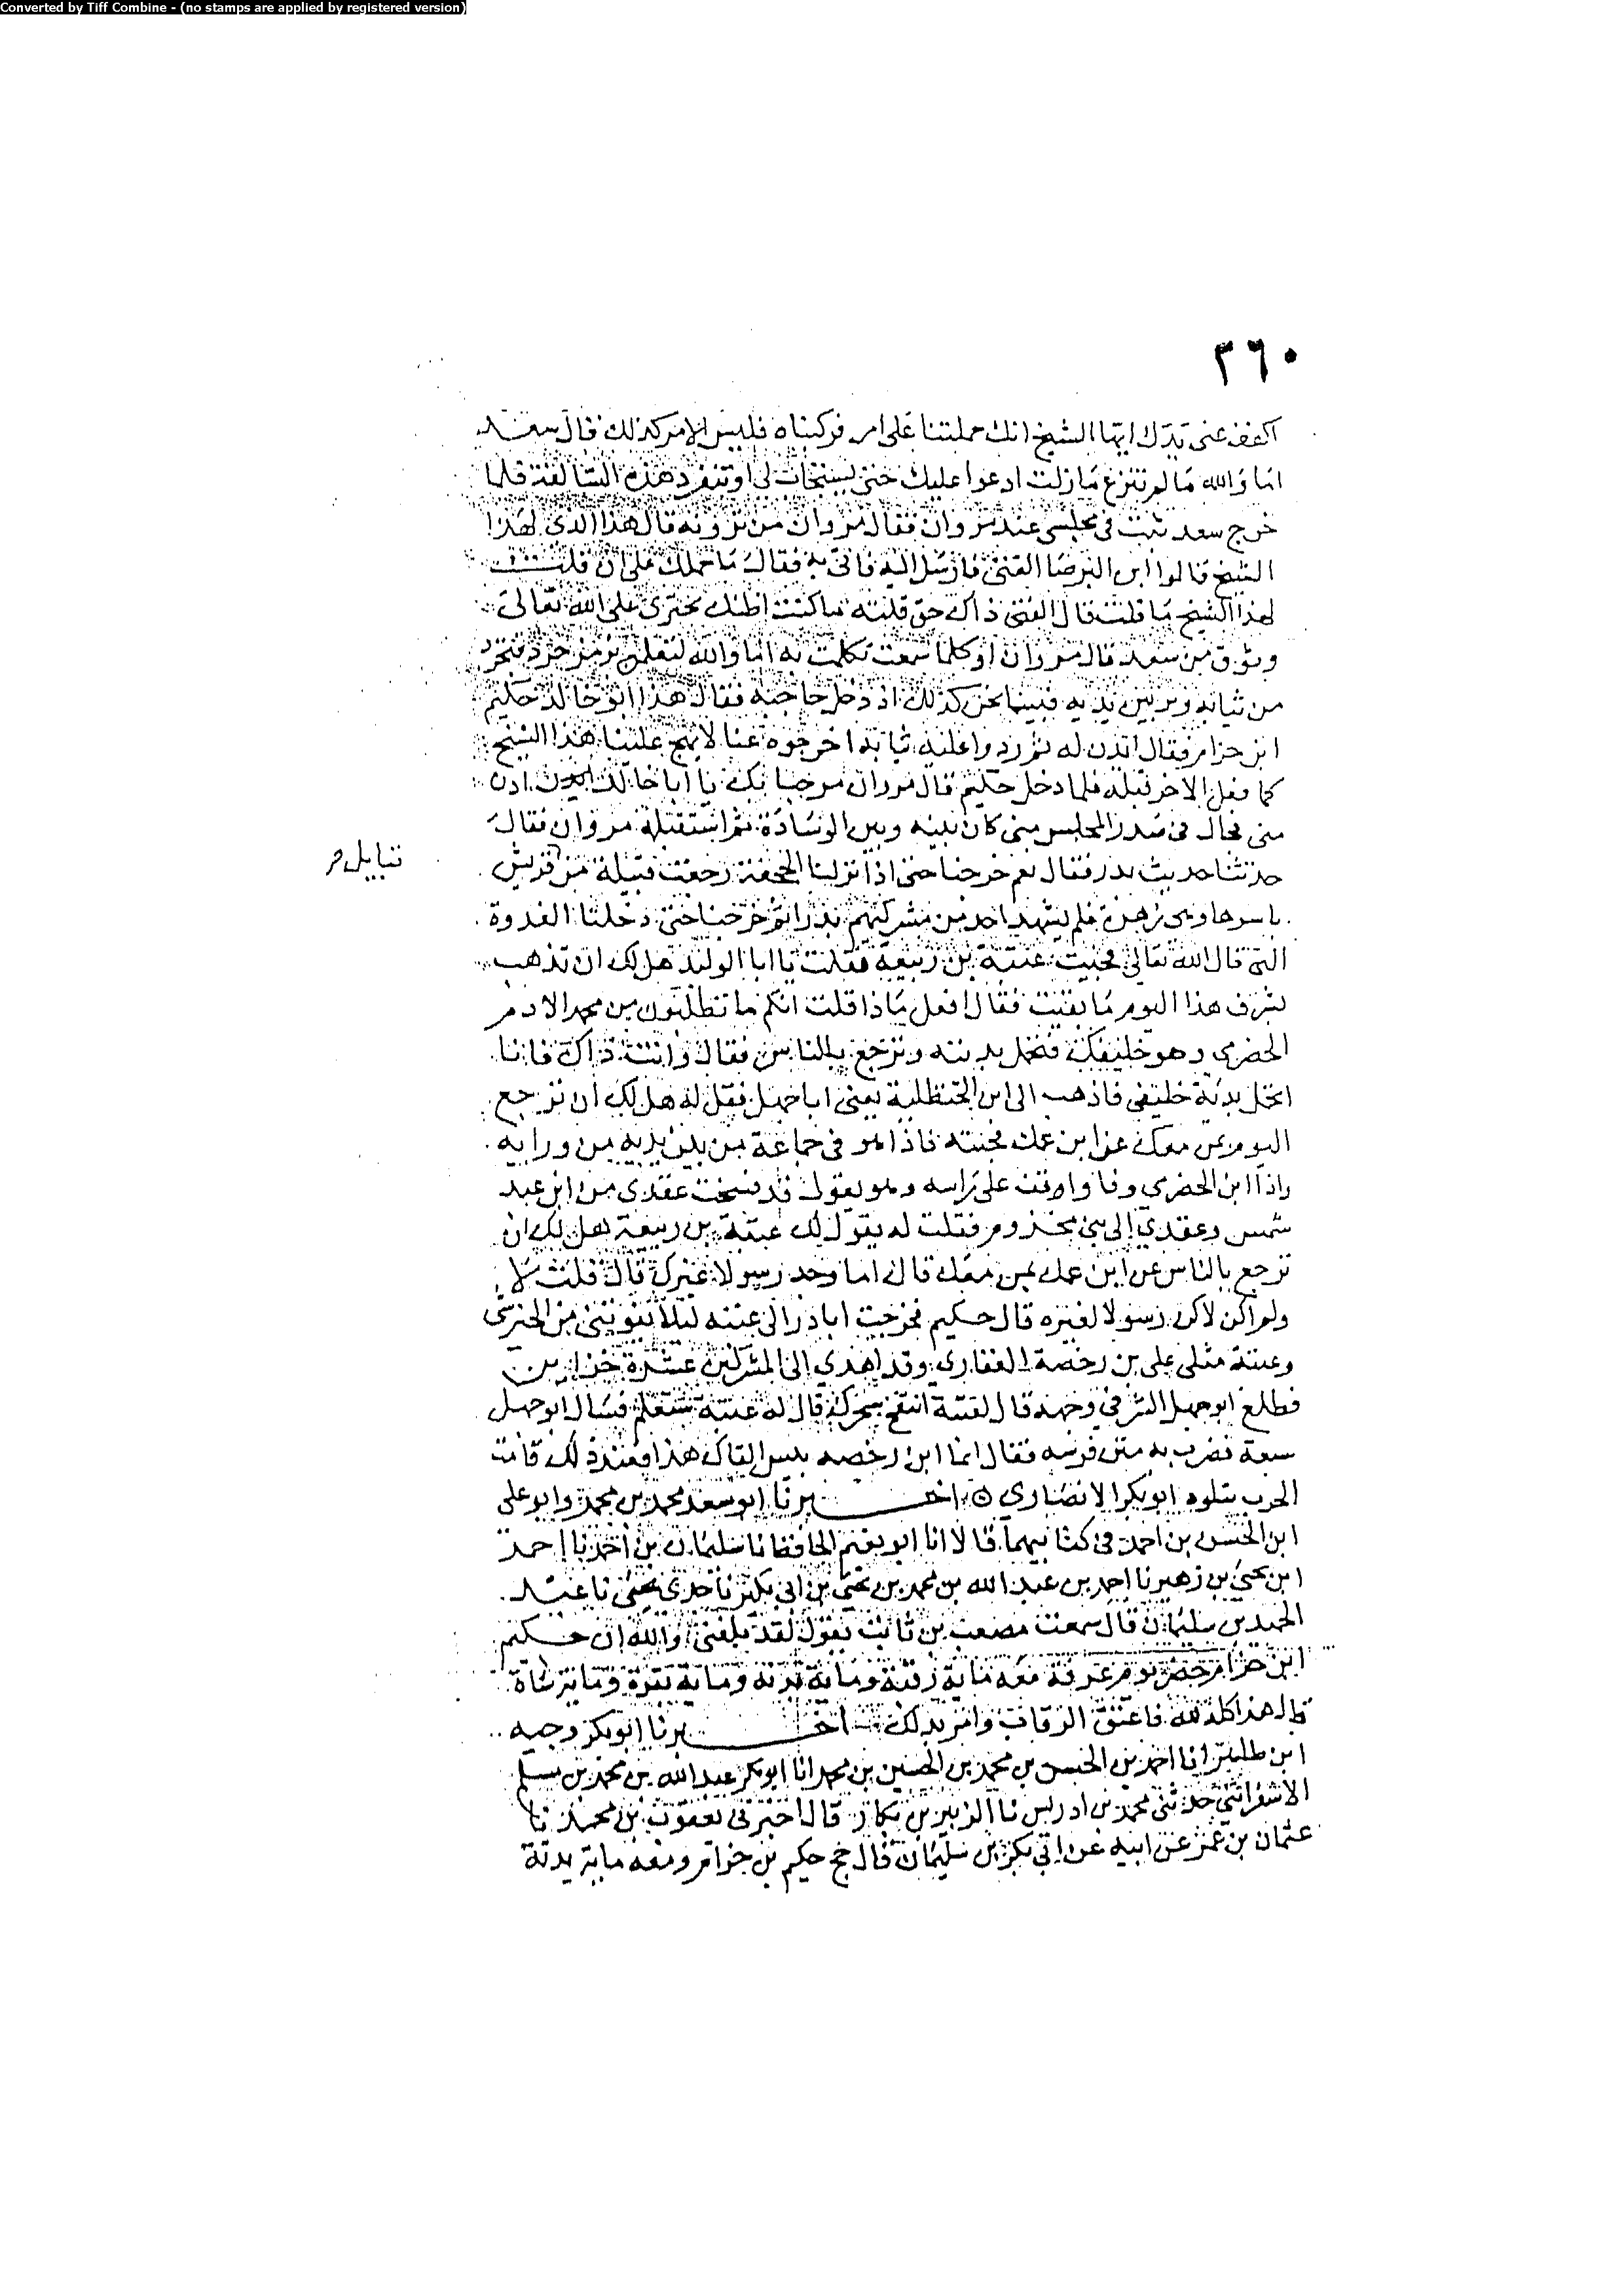 Converted by Tiff Combine - (no stamps are applied by registered version)
٣٦٠
اكفف عني يدك ايها الشيخ انك حملتنا على امر فركبناه فليس الامر كذلك فقال سعد
اما والله ما لم تنزع ما زلت ادعوا عليك حتى يستجاب لي او تنفرد هذه السالفة فلما
خرج سعد ثبت في مجلسي عند مروان فقال مروان من ترونه قال هذا الذي لهذا
الشيخ قالوا ابن البرصا الفتى فارسل اليه فاتي به فقال ما حملك على ان قلت
لهذا الشيخ ما قلت قال الفتى ذاك حق قلته ما كنت اظنك تجترى على الله تعالى
وتفرق من سعد قال مروان اوكلما سمعت تكلمت به اما والله لتعلمن برمز جرد فجرد
من ثيابه وبرز بين يديه فبينما نحن كذلك اذ دخل حاجبه فقال هذا ابو خالد حكيم
ابن حزام فقال ائذن له ثم ردوا عليه ثيابه اخرجوه عنا لا يهج علينا هذا الشيخ
كما فعل الاخر قبله فلما دخل حكيم قال مروان مرحبا بك يا ابا خالد ادن
مني فحال في صدر المجلس حتى كان بينه وبين الوسادة ثم استقبله مروان فقال
حدثنا حديث بدر فقال نعم خرجنا حتى اذا نزلنا الجحفة رجعت قبيلة من قريش
قبايل
باسرها وهي زهرة فلم يشهد احد من مشركيهم بدرا ثم خرجنا حتى دخلنا العدوة
التي قال الله تعالى فجيت عتبة بن ربيعة فقلت يا ابا الوليد هل لك ان تذهب
بشرف هذا اليوم ما بقيت فقال افعل ماذا قلت انكم ما تطلبون من محمد الا دم
الحضرمي وهو حليفك فتحمل بديته وترجع بالناس فقال وانت ذاك فانا
اتحمل بدية حليفي فاذهب الى ابن الحنظلية يعني ابا جهل فقل له هل لك ان ترجع
اليوم بمن معك عن ابن عمك فجيته فاذا هو في جماعة من بين يديه من ورايه
واذا ابن الحضرمي واقف على راسه وهو يقول قد فسخت عقدي من ابن عبد
شمس وعقدي الى بني مخزوم فقلت له يقول لك عتبة بن ربيعة هل لك ان
ترجع بالناس عن ابن عمك بمن معك قال اما وجد رسولا غيرك قال قلت لا
ولم اكن لاكن رسولا لغيره قال حكيم فخرجت ابادر الى عتبة ليلا يفوتني من الخبر شي
وعتبة متكي على بن رخصة الغفاري وقد اهدي الى المشركين عشرة جزاير
فطلع ابو جهل الشر في وجهه قال لعتبة انتفخ سحرك قال له عتبة ستعلم فسال ابو جهل
سيفه فضرب به متن فرسه فقال ايما ابن رخصه بيس الفال هذا فعند ذلك قامت
الحرب يتلوه ابو بكر الانصاري اخبرنا ابو سعد محمد بن محمد وابو علي
ابن الحسن بن احمد في كتابيهما قالا انا ابو نعيم الحافظ نا سليمان بن احمد نا احمد
ابن يحيى بن زهير نا احمد بن عبد الله بن محمد بن يحيى بن ابي بكير نا جدي يحيى نا عبد
الحميد بن سليمان قال سمعت مصعب بن ثابت يقول لقد بلغني والله ان حكيم
ابن حزام حضر يوم عرفة معه ماية رقبة وماية بدنة وماية بقرة وماية شاة
قال هذا كله لله فاعتق الرقاب وامر بذلك اخبرنا ابو بكر وجيه
ابن طاهر انا احمد بن الحسن بن محمد بن الحسين بن محمد انا ابو بكر عبد الله بن محمد بن مسلم
الاسفرائني حدثني محمد بن ادريس نا الزبير بن بكار قال اخبرني يعقوب بن محمد نا
عثمان بن عمر عن ابيه عن ابي بكر ابن سليمان قال حج حكيم بن حزام ومعه ماية بدنة